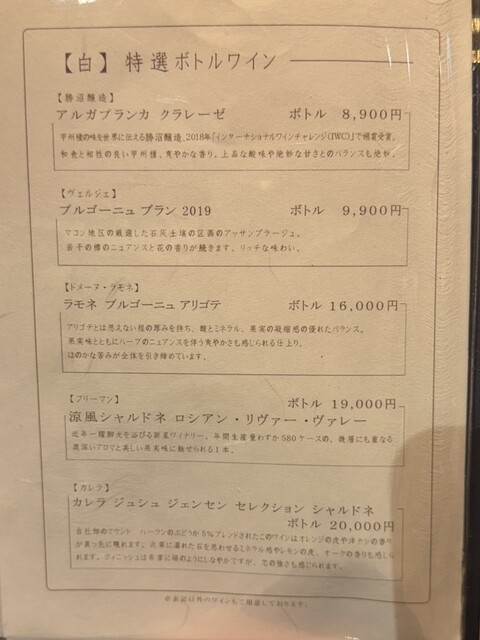 【白】特選ボトルワイン
【勝沼醸造】
アルガブランカ クラレーゼ ボトル 8,900円
甲州種の味を世界に伝える勝沼醸造。2018年「インターナショナルワインチャレンジ(IWC)」で銅賞受賞。
和食と相性の良い甲州種、爽やかな香り、上品な酸味や絶妙な甘さとのバランスも絶妙。
【ヴェルジェ】
ブルゴーニュ ブラン 2019 ボトル 9,900円
マコン地区の厳選した石灰土壌の区画のアッサンブラージュ。
若干の樽のニュアンスと花の香りが続きます。リッチな味わい。
【ドメーヌ・ラモネ】
ラモネ ブルゴーニュ アリゴテ ボトル 16,000円
アリゴテとは思えない程の厚みを持ち、酸とミネラル、果実の凝縮感の優れたバランス。
果実味とともにハーブのニュアンスを伴う爽やかさも感じられる仕上り。
ほのかな苦みが全体を引き締めています。
【フリーマン】
ボトル 19,000円
涼風シャルドネ ロシアン・リヴァー・ヴァレー
近年一躍脚光を浴びる新星ワイナリー。年間生産量わずか580ケースの、幾層にも重なる
奥深いアロマと美しい果実味に魅せられる1本。
【カレラ】
カレラ ジョシュ ジェンセン セレクション シャルドネ
ボトル 20,000円
自社畑のマウント ハーランのぶどうが5%ブレンドされたこのワインはオレンジの皮や洋ナシの香り
が真っ先に現れます。次第に濡れた石を思わせるミネラル感やレモンの皮、オークの香りも感じら
れます。フィニッシュは非常に絹のようにしなやかですが、芯の強さも感じられます。
※表記以外のワインもご用意しております。